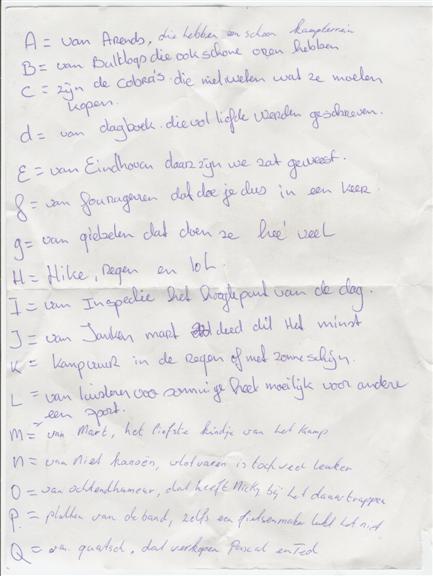 A = van Arends, die hebben een schoon kampterrein
B = van Bulldogs die ook schone oren hebben
C = zijn de Cobra's die niet weten wat ze moeten
kopen.
d = van dagboek. die vol liefde werden geschreven.
E = van Eindhoven daar zijn we zat geweest.
f = van fourageren dat doe je dus in een keer.
g = van giebelen dat doen ze heel veel
H = Hike, regen en lol.
I = van Inspectie het hoogtepunt van de dag.
J = van Janken mart deed dit Het minst
K = kampvuur in de regen of met zonneschijn.
L = van luisteren voor sommige heel moeilijk voor andere
een sport.
M = van Mart, het liefste kindje van het kamp
N = van Niet kanoën, vlotvaren is toch veel leuker
O = van ochtendhumeur, dat heeft Nicky bij het dauwtrappen
P = plakken van de band, zelfs een fietsenmaker lukt het niet
Q = van quatsch, dat verkopen Pascal en Ted